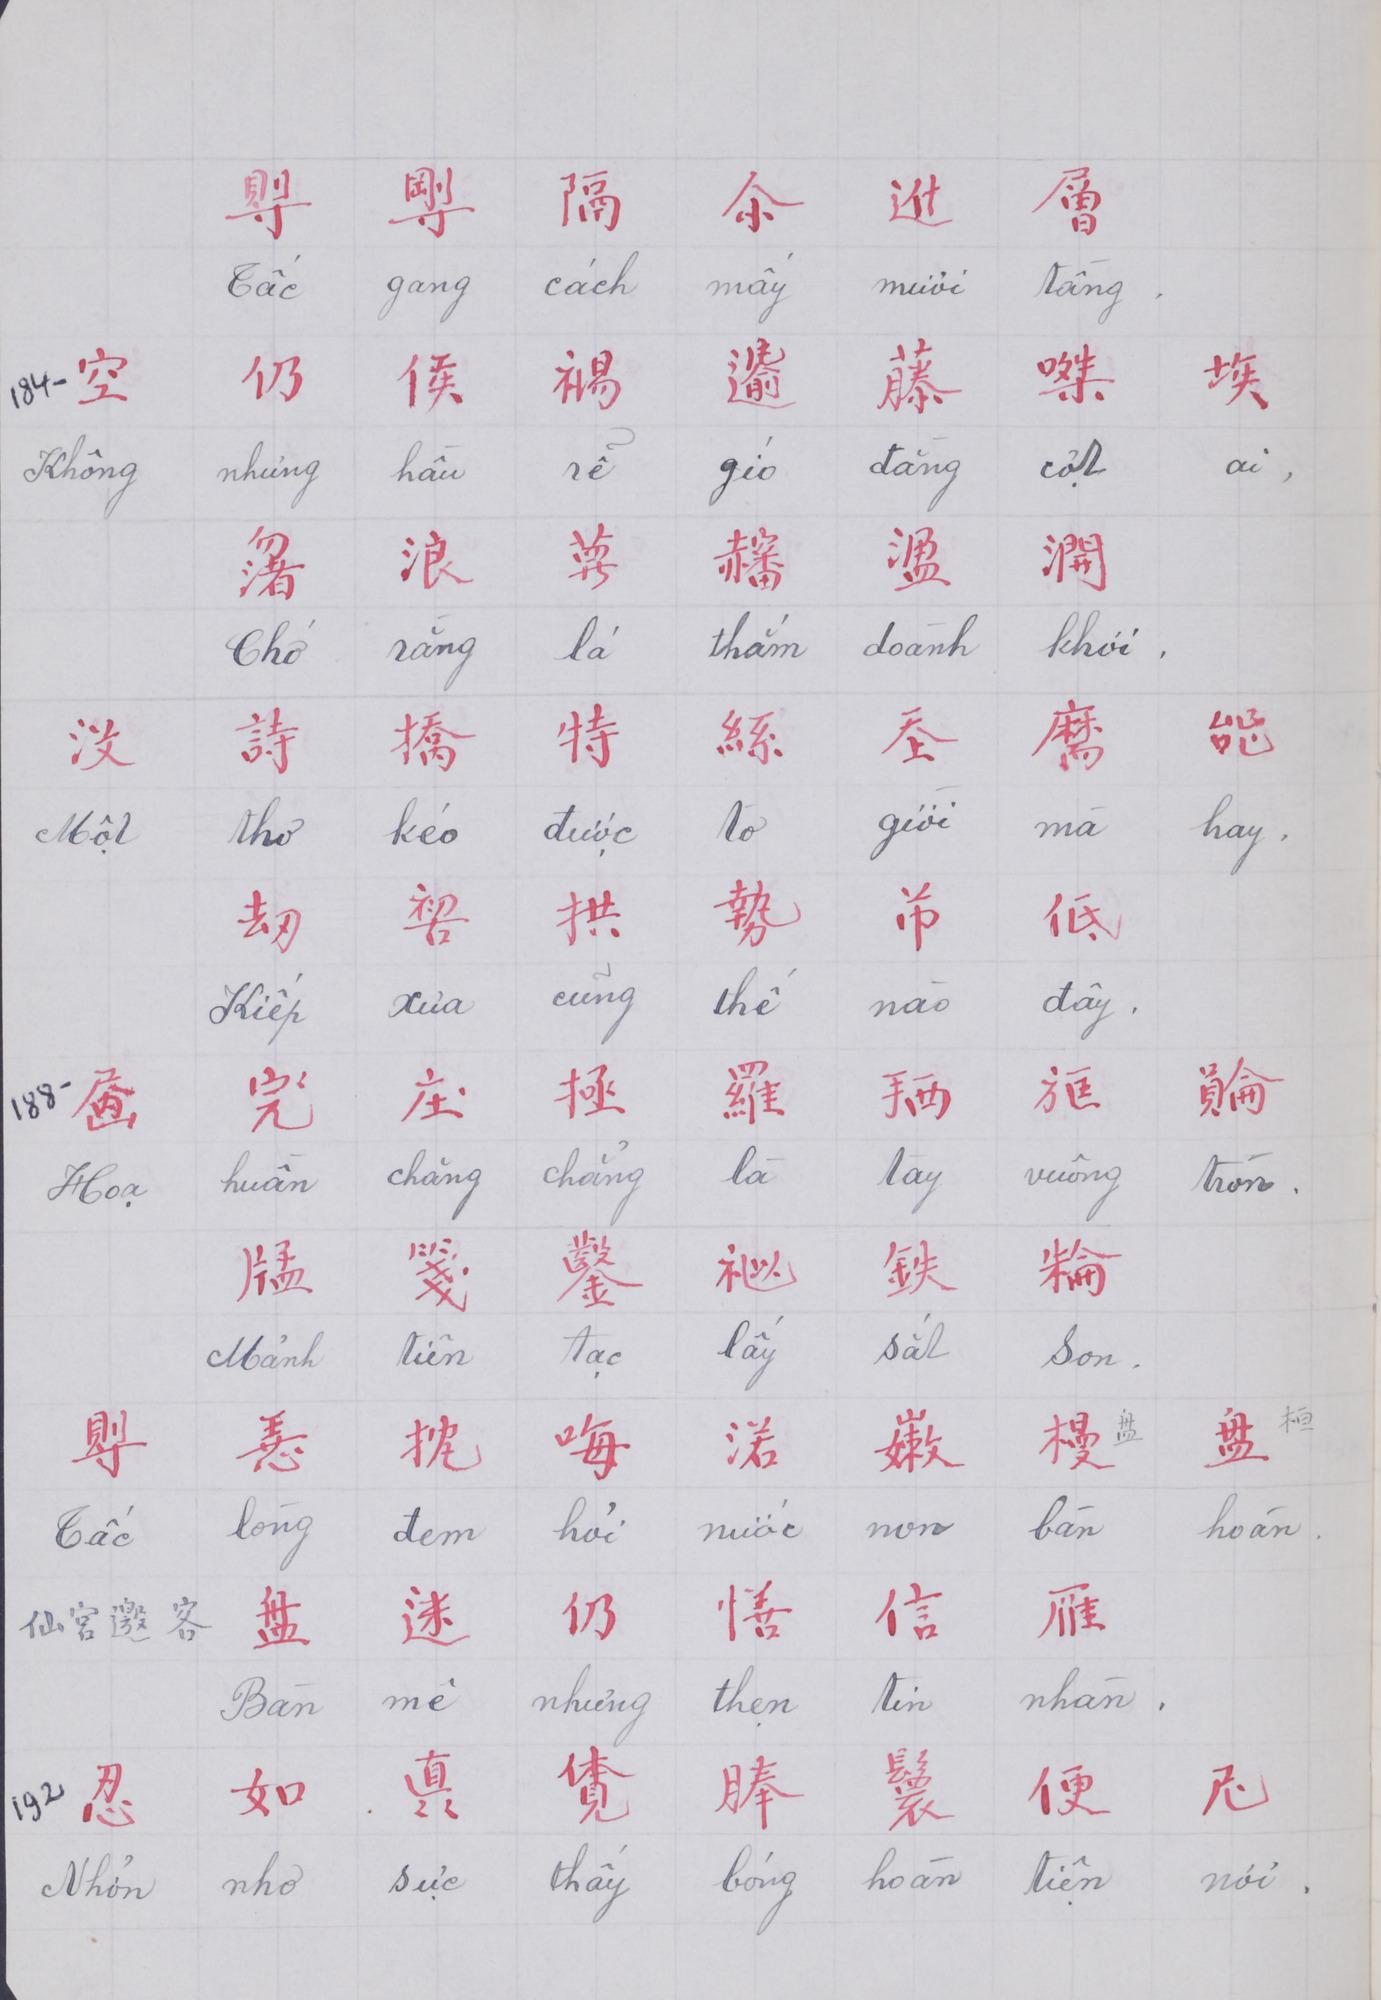 剛 隔 尒 𨑮 層
Tấc gang cách mấy mươi tầng.
184- 空 仍 侯 禓 藤 㗎 埃
Không nhưng hầu rể gió đằng cợt ai,
渚 浪 盈 澗
Chớ rằng lá thắm doành khơi.
沒 詩 撟 特 絲 𡗶 麿 咍
Một thơ kéo được tơ giời mà hay,
刼 拱 勢 芇 低
Kiếp xưa cũng thế nào đây.
188- 畵 完 庄 極 羅 𢬣 𣃱 𧷺
Hoạ huần chăng chẳng là tay vuông tròn.
箋 鑿 𥙩 鉄 𣜾
Mảnh tiên tạc lấy sắt son.
𡬷 𢚸 抌 晦 渃 嫩 槾 盘 盘 桓
Tấc lòng đem hỏi nước non bàn hoàn.
仙 宮 邀 客 盘 迷 仍 𢢆 信 雁
Bàn mê nhưng thẹn tin nhàn.
192 忍 如 𧡊 鬟 便 尼
Nhởn nhơ sực thấy bóng hoàn tiện nơi.